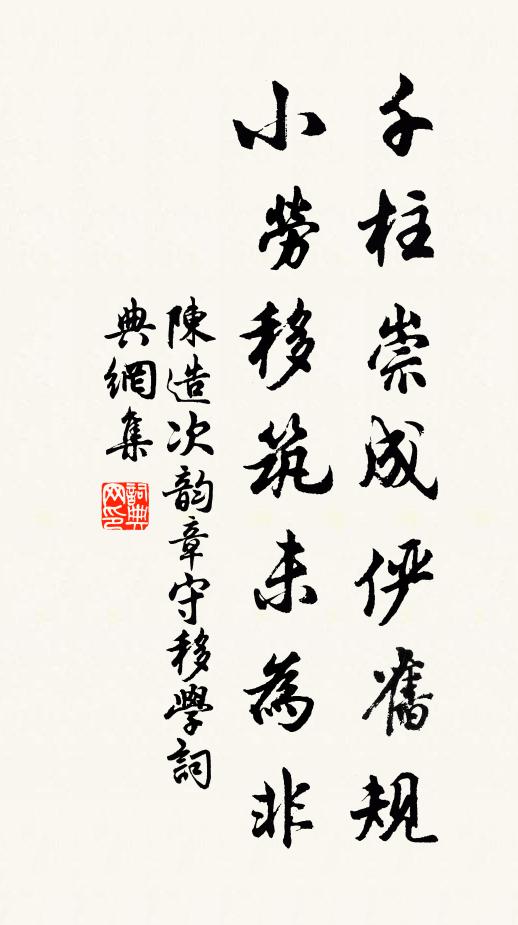 千柱崇成俨舊規
小勞移筑未為非
陳造次韵章守移學詞
典網集
詞典網印